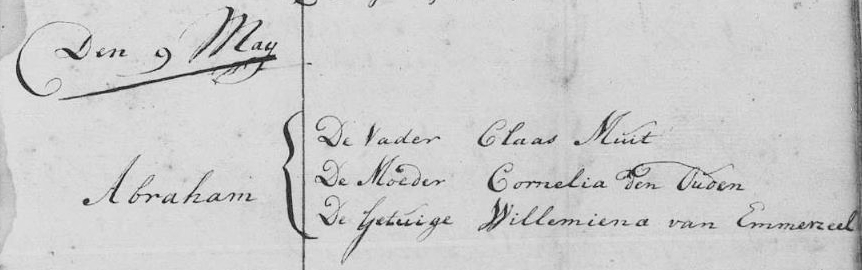 Den 9 May
De Vader Claas Muit
De Moeder Cornelia den Ouden
Abraham
De Getuige Willemiena van Emmerzeel